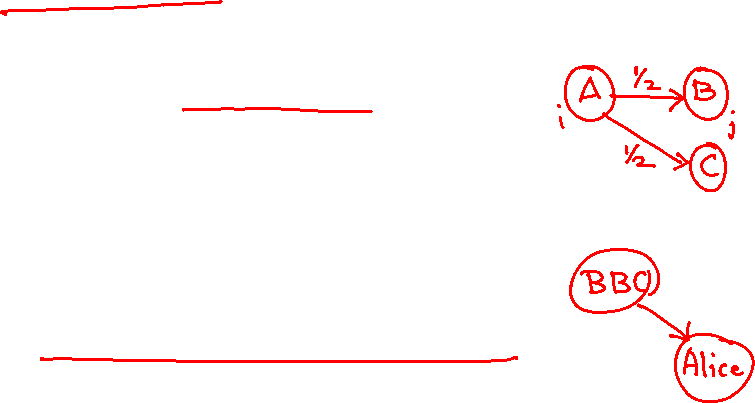 A 1/2 B
i j
1/2 C
BBC
Alice